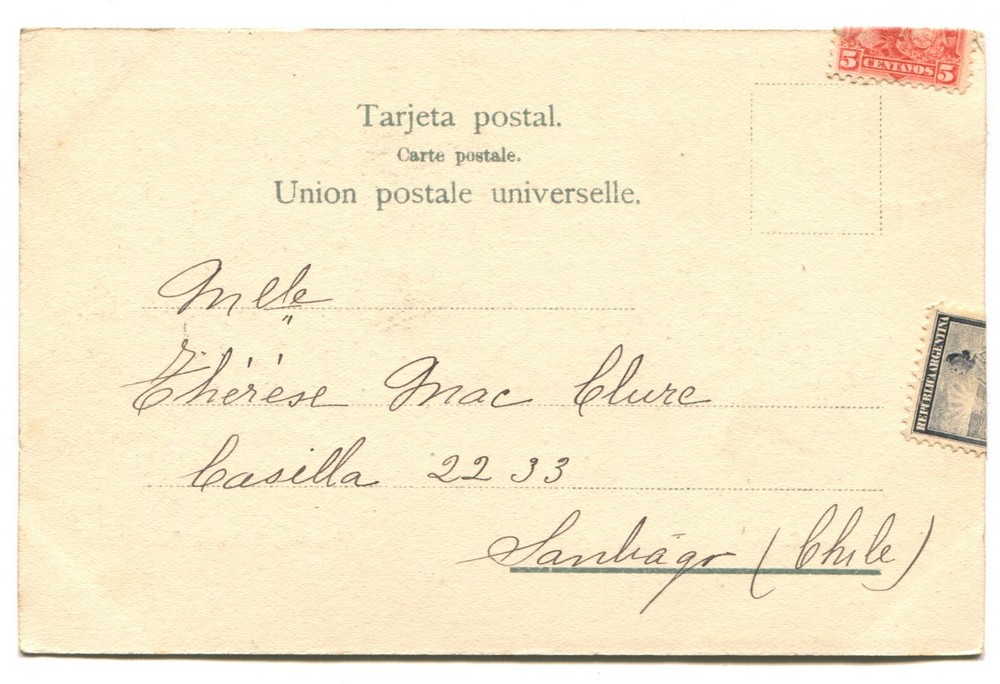 5 CENTAVOS 5
Tarjeta postal.
Carte postale.
Union postale universelle.
REPUBLICA ARGENTINA
Mlle
Thérèse Mac Clure
Casilla 2233
Santiago (Chile)